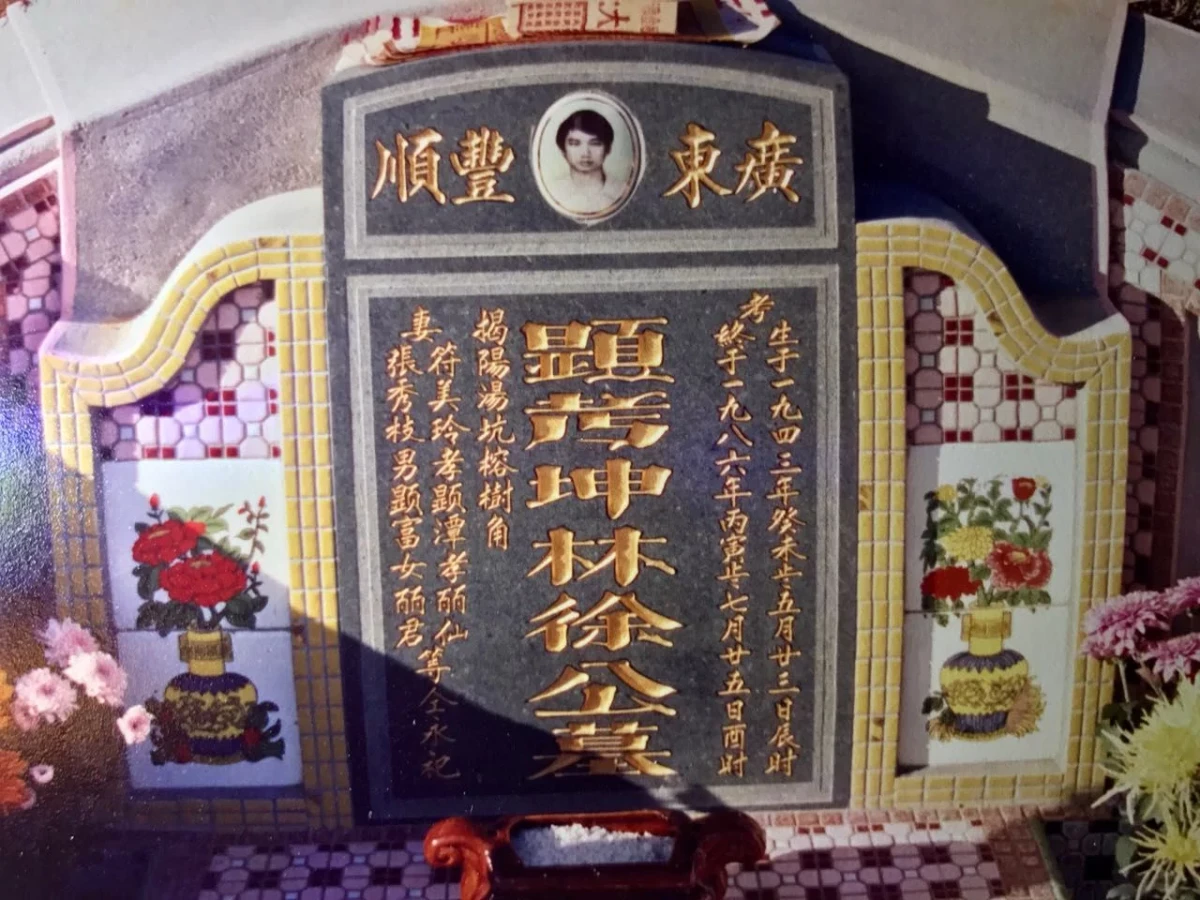 廣東豐順
考
生于一九四三年癸未歲五月廿三日辰时
終于一九八六年丙寅歲七月廿五日酉时
顯考坤林徐公墓
揭陽湯坑榕樹角
妻
符美玲孝顯潭孝丽仙等仝永祀
張秀枝男顯富女丽君
大